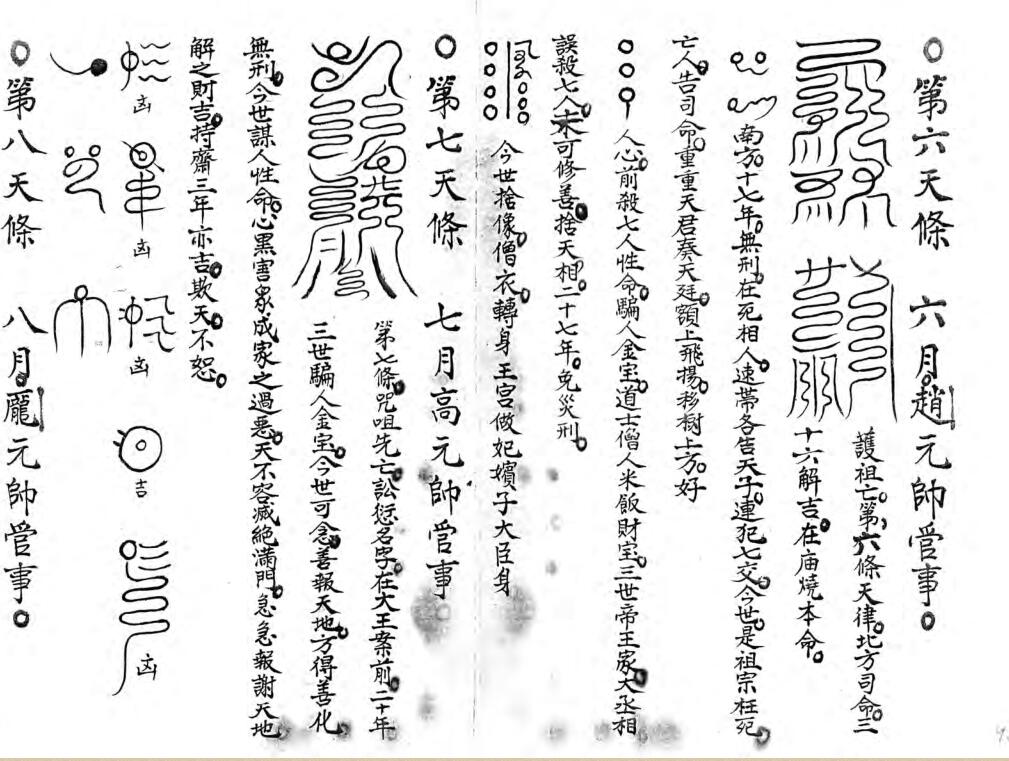 〇第六天條 六月趙元帥管事。
護祖亡。第六條天律。北方司命。三
十六解吉。在庙燒本命。
南方。十七年。無刑。在死相人。速帶各告天子。連犯七交。今世。是祖宗枉死。
亡人。告司命。重重天君奏天廷。額上飛揚。移樹上方。好
人心。前殺七人性命。騙人金宝。道士僧人米飯財宝。三世帝王家。大丞相
誤殺七人。未可修善。捨天相。二十七年。免災刑。
今世捨像。僧衣。轉身王宫做妃嬪子大臣身
〇第七天條 七月高元帥管事
第七條。咒咀先亡。訟衍名字。在大王案前。二十年
三世騙人金宝。今世可念。善報天地。方得善化。
無刑。今世謀人性命。心黑害衆。成家之過惡。天不容。滅絶滿門。急急報謝天地。
解之則吉。持齋三年亦吉。欺天。不恕。
凶
凶
凶
吉
凶
〇第八天條 八月。龎元帥管事。